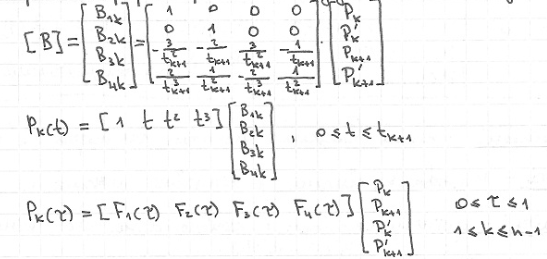 [B] = [B₁ₖ B₂ₖ B₃ₖ B₄ₖ] = [1 0 0 0; 0 1 0 0; -3/t²ₖ₊₁ -2/tₖ₊₁ 3/t²ₖ₊₁ -1/tₖ₊₁; 2/t³ₖ₊₁ 1/t²ₖ₊₁ -2/t³ₖ₊₁ 1/t²ₖ₊₁] · [Pₖ P'ₖ Pₖ₊₁ P'ₖ₊₁]
Pₖ(t) = [1 t t² t³] [B₁ₖ B₂ₖ B₃ₖ B₄ₖ] , 0 ≤ t ≤ tₖ₊₁
Pₖ(τ) = [F₁(τ) F₂(τ) F₃(τ) F₄(τ)] [Pₖ Pₖ₊₁ P'ₖ P'ₖ₊₁] 0 ≤ τ ≤ 1
1 ≤ k ≤ n-1